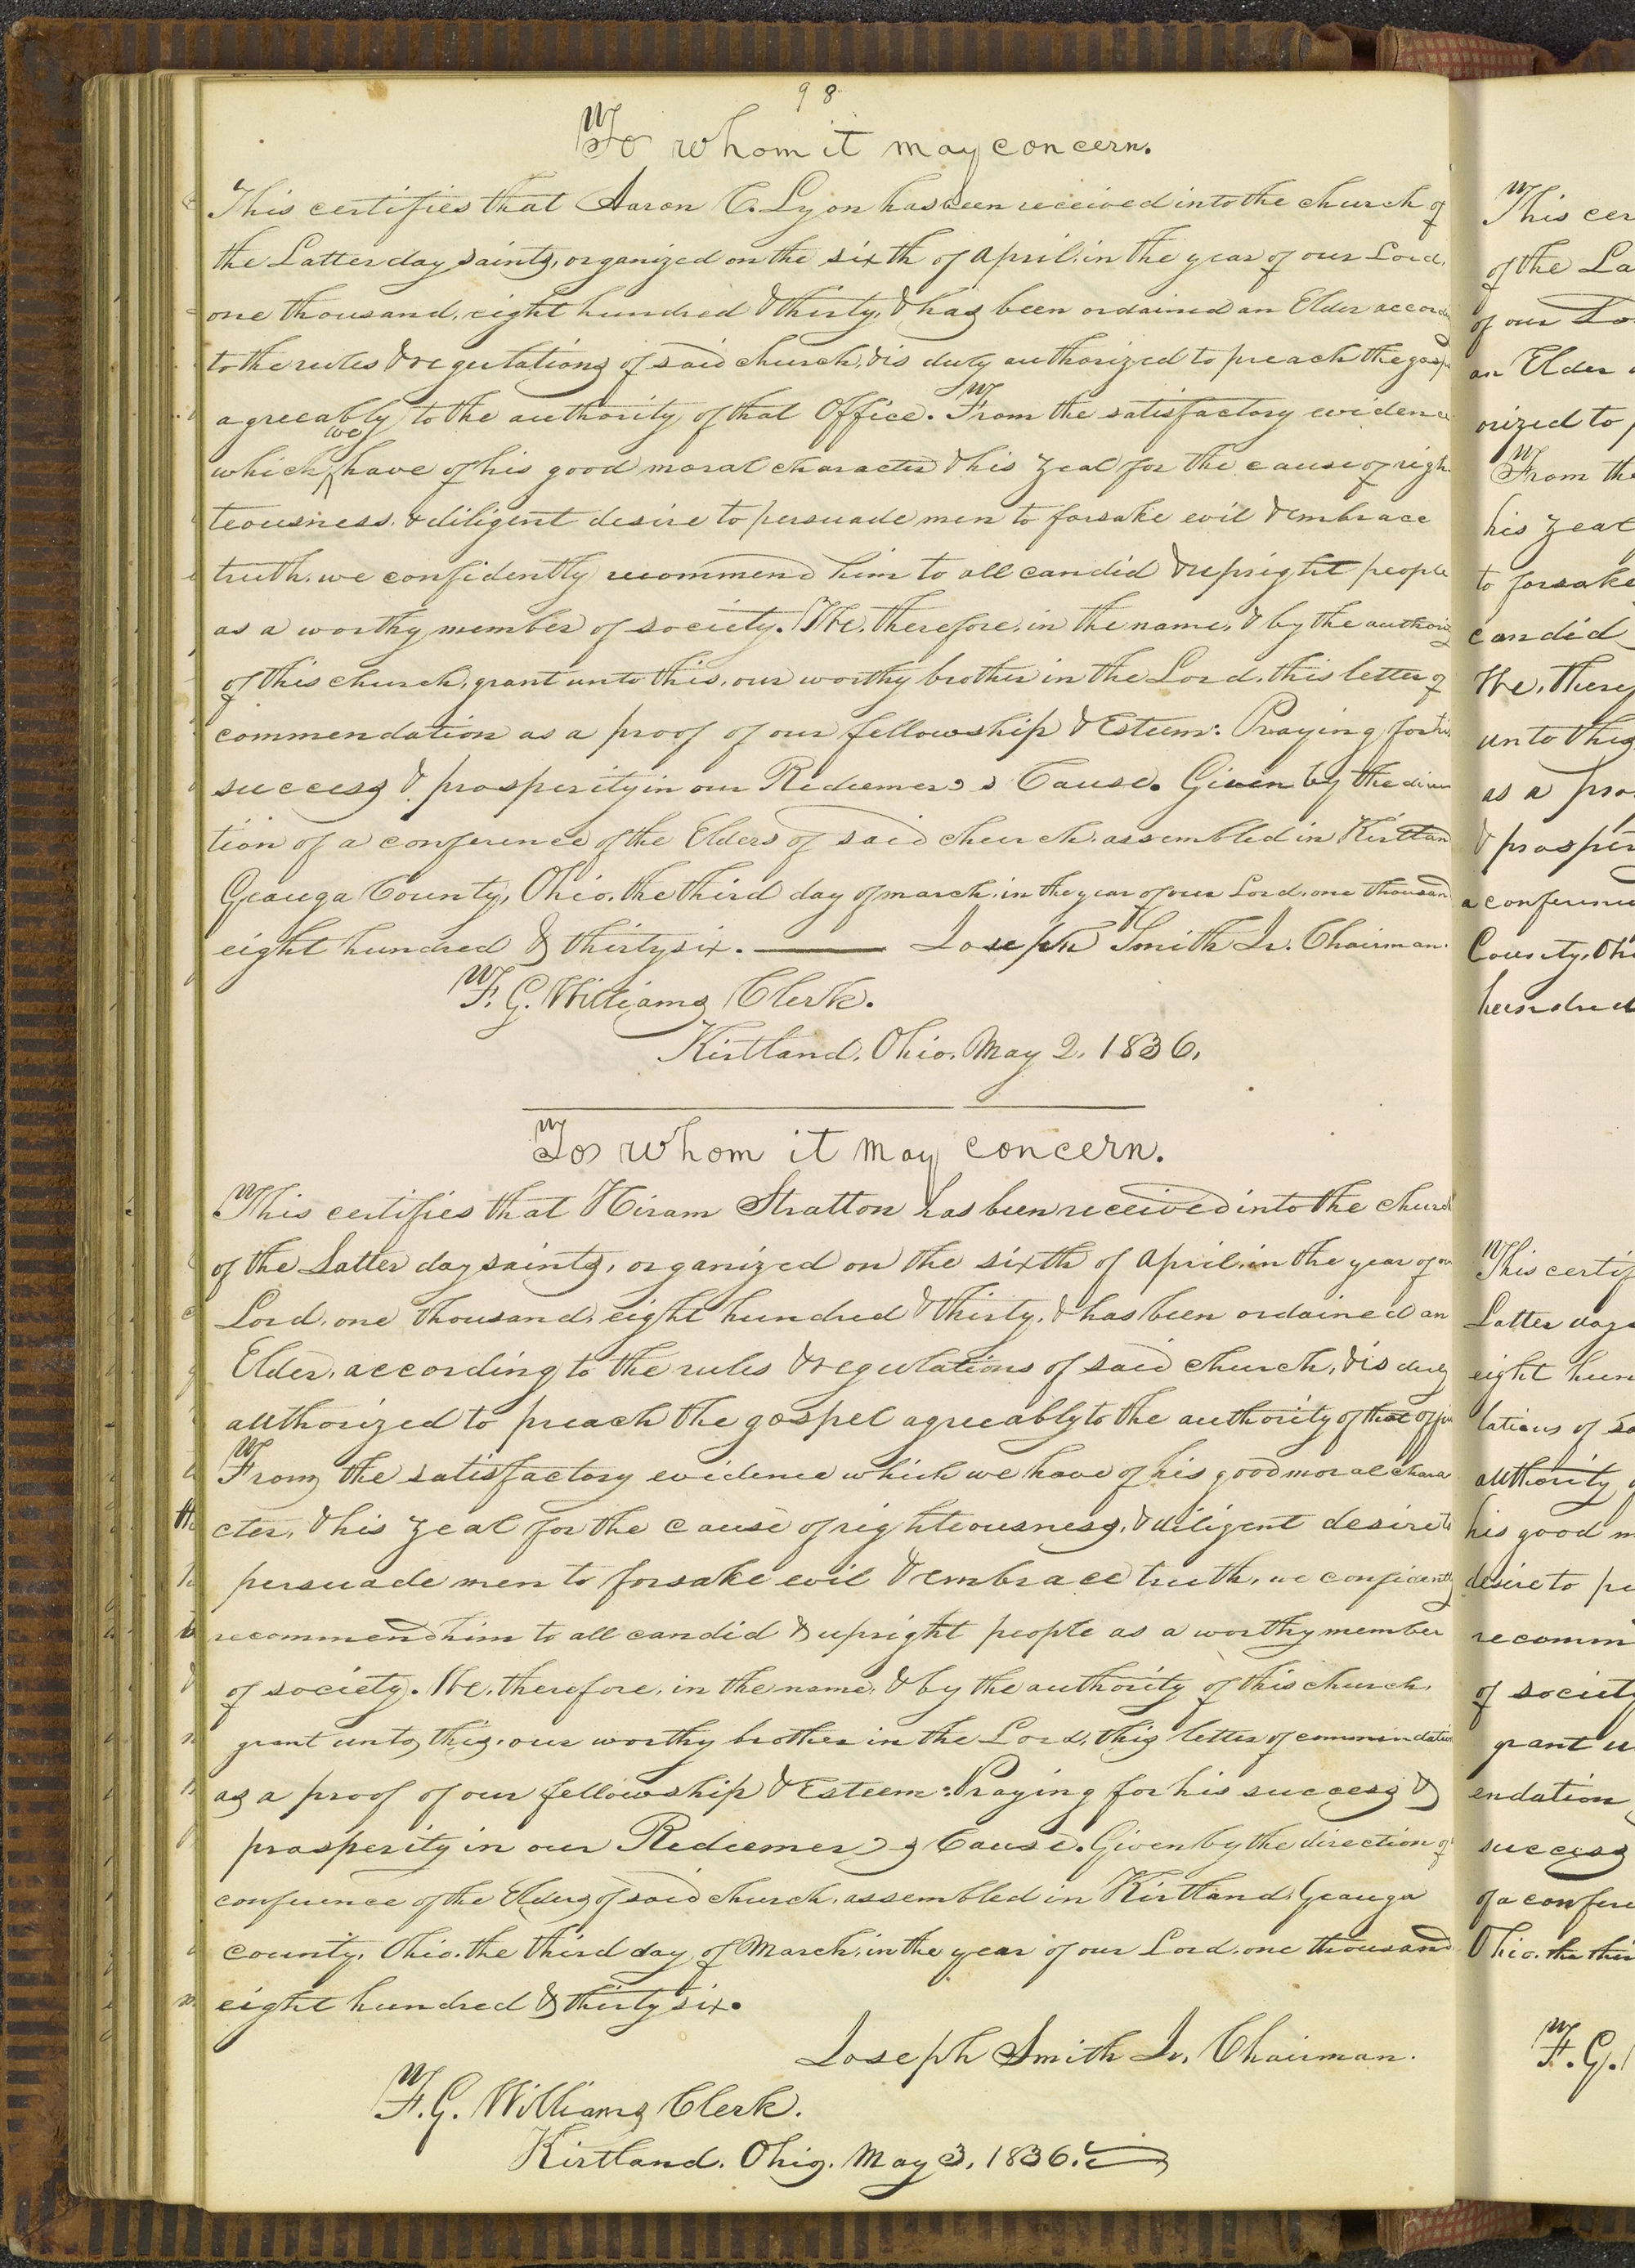 98
To whom it may concern.
This certifies that Aaron C. Lyon has been received into the church of
the Latter day saints, organized on the sixth of April, in the year of our Lord,
one thousand, eight hundred & thirty, & has been ordained an Elder accord
to the rules & regulations of said church, & is duly authorized to preach the gosp
agreeably to the authority of that Office. From the satisfactory evidence
which we have of his good moral character & his zeal for the cause of righ
teousness, & diligent desire to persuade men to forsake evil & embrace
truth, we confidently recommend him to all candid & upright people
as a worthy member of society. We, therefore, in the name, & by the authority
of this church, grant unto this, our worthy brother in the Lord, this letter of
commendation as a proof of our fellowship & Esteem: Praying for his
success & prosperity in our Redeemer's Cause. Given by the direc
tion of a conference of the Elders of said church, assembled in Kirtland
Geauga County, Ohio, the third day of march, in the year of our Lord, one thousand
eight hundred & thirty six. — Joseph Smith Jr. Chairman.
F. G. Williams Clerk.
Kirtland, Ohio, May 2, 1836,
To whom it may concern.
This certifies that Hiram Stratton has been received into the church
of the Latter day saints, organized on the sixth of April, in the year of our
Lord, one thousand, eight hundred & thirty, & has been ordained an
Elder, according to the rules & regulations of said church, & is duly
authorized to preach the gospel agreeably to the authority of that office
From the satisfactory evidence which we have of his good moral chara
cter, & his zeal for the cause of righteousness, & diligent desire to
persuade men to forsake evil & embrace truth, we confidently
recommend him to all candid & upright people as a worthy member
of society. We, therefore, in the name, & by the authority of this church,
grant unto this, our worthy brother in the Lord, this letter of commendation
as a proof of our fellowship & Esteem: Praying for his success &
prosperity in our Redeemer's Cause. Given by the direction of
conference of the Elders of said church, assembled in Kirtland Geauga
county, Ohio, the third day of March, in the year of our Lord, one thousand
eight hundred & thirty six.
Joseph Smith Jr. Chairman.
F. G. Williams Clerk.
Kirtland, Ohio, May 3, 1836.
This cer
of the La
of our Lo
an Elder
orized to
From the
his zeal
to forsake
candid
We, theref
unto this
as a pro
& prosper
a conferenc
County, Ohi
hundred
This certif
Latter day
eight hun
lations of sa
authority
his good m
desire to pe
recomm
of society
grant u
endation
success
of a confere
Ohio, the thir
F. G.